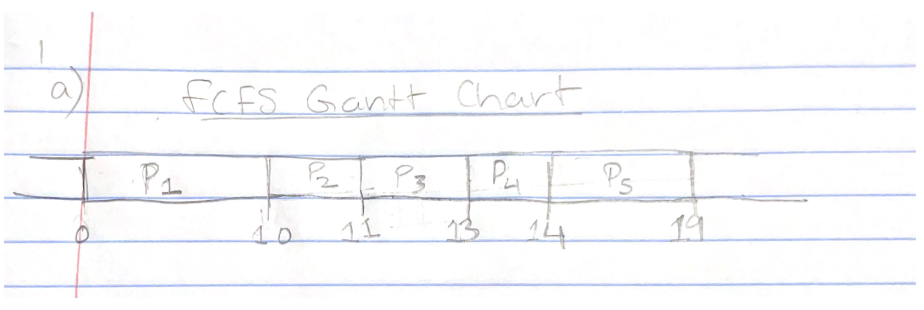 1
a) FCFS Gantt Chart
P1 P2 P3 P4 P5
0 10 11 13 14 19